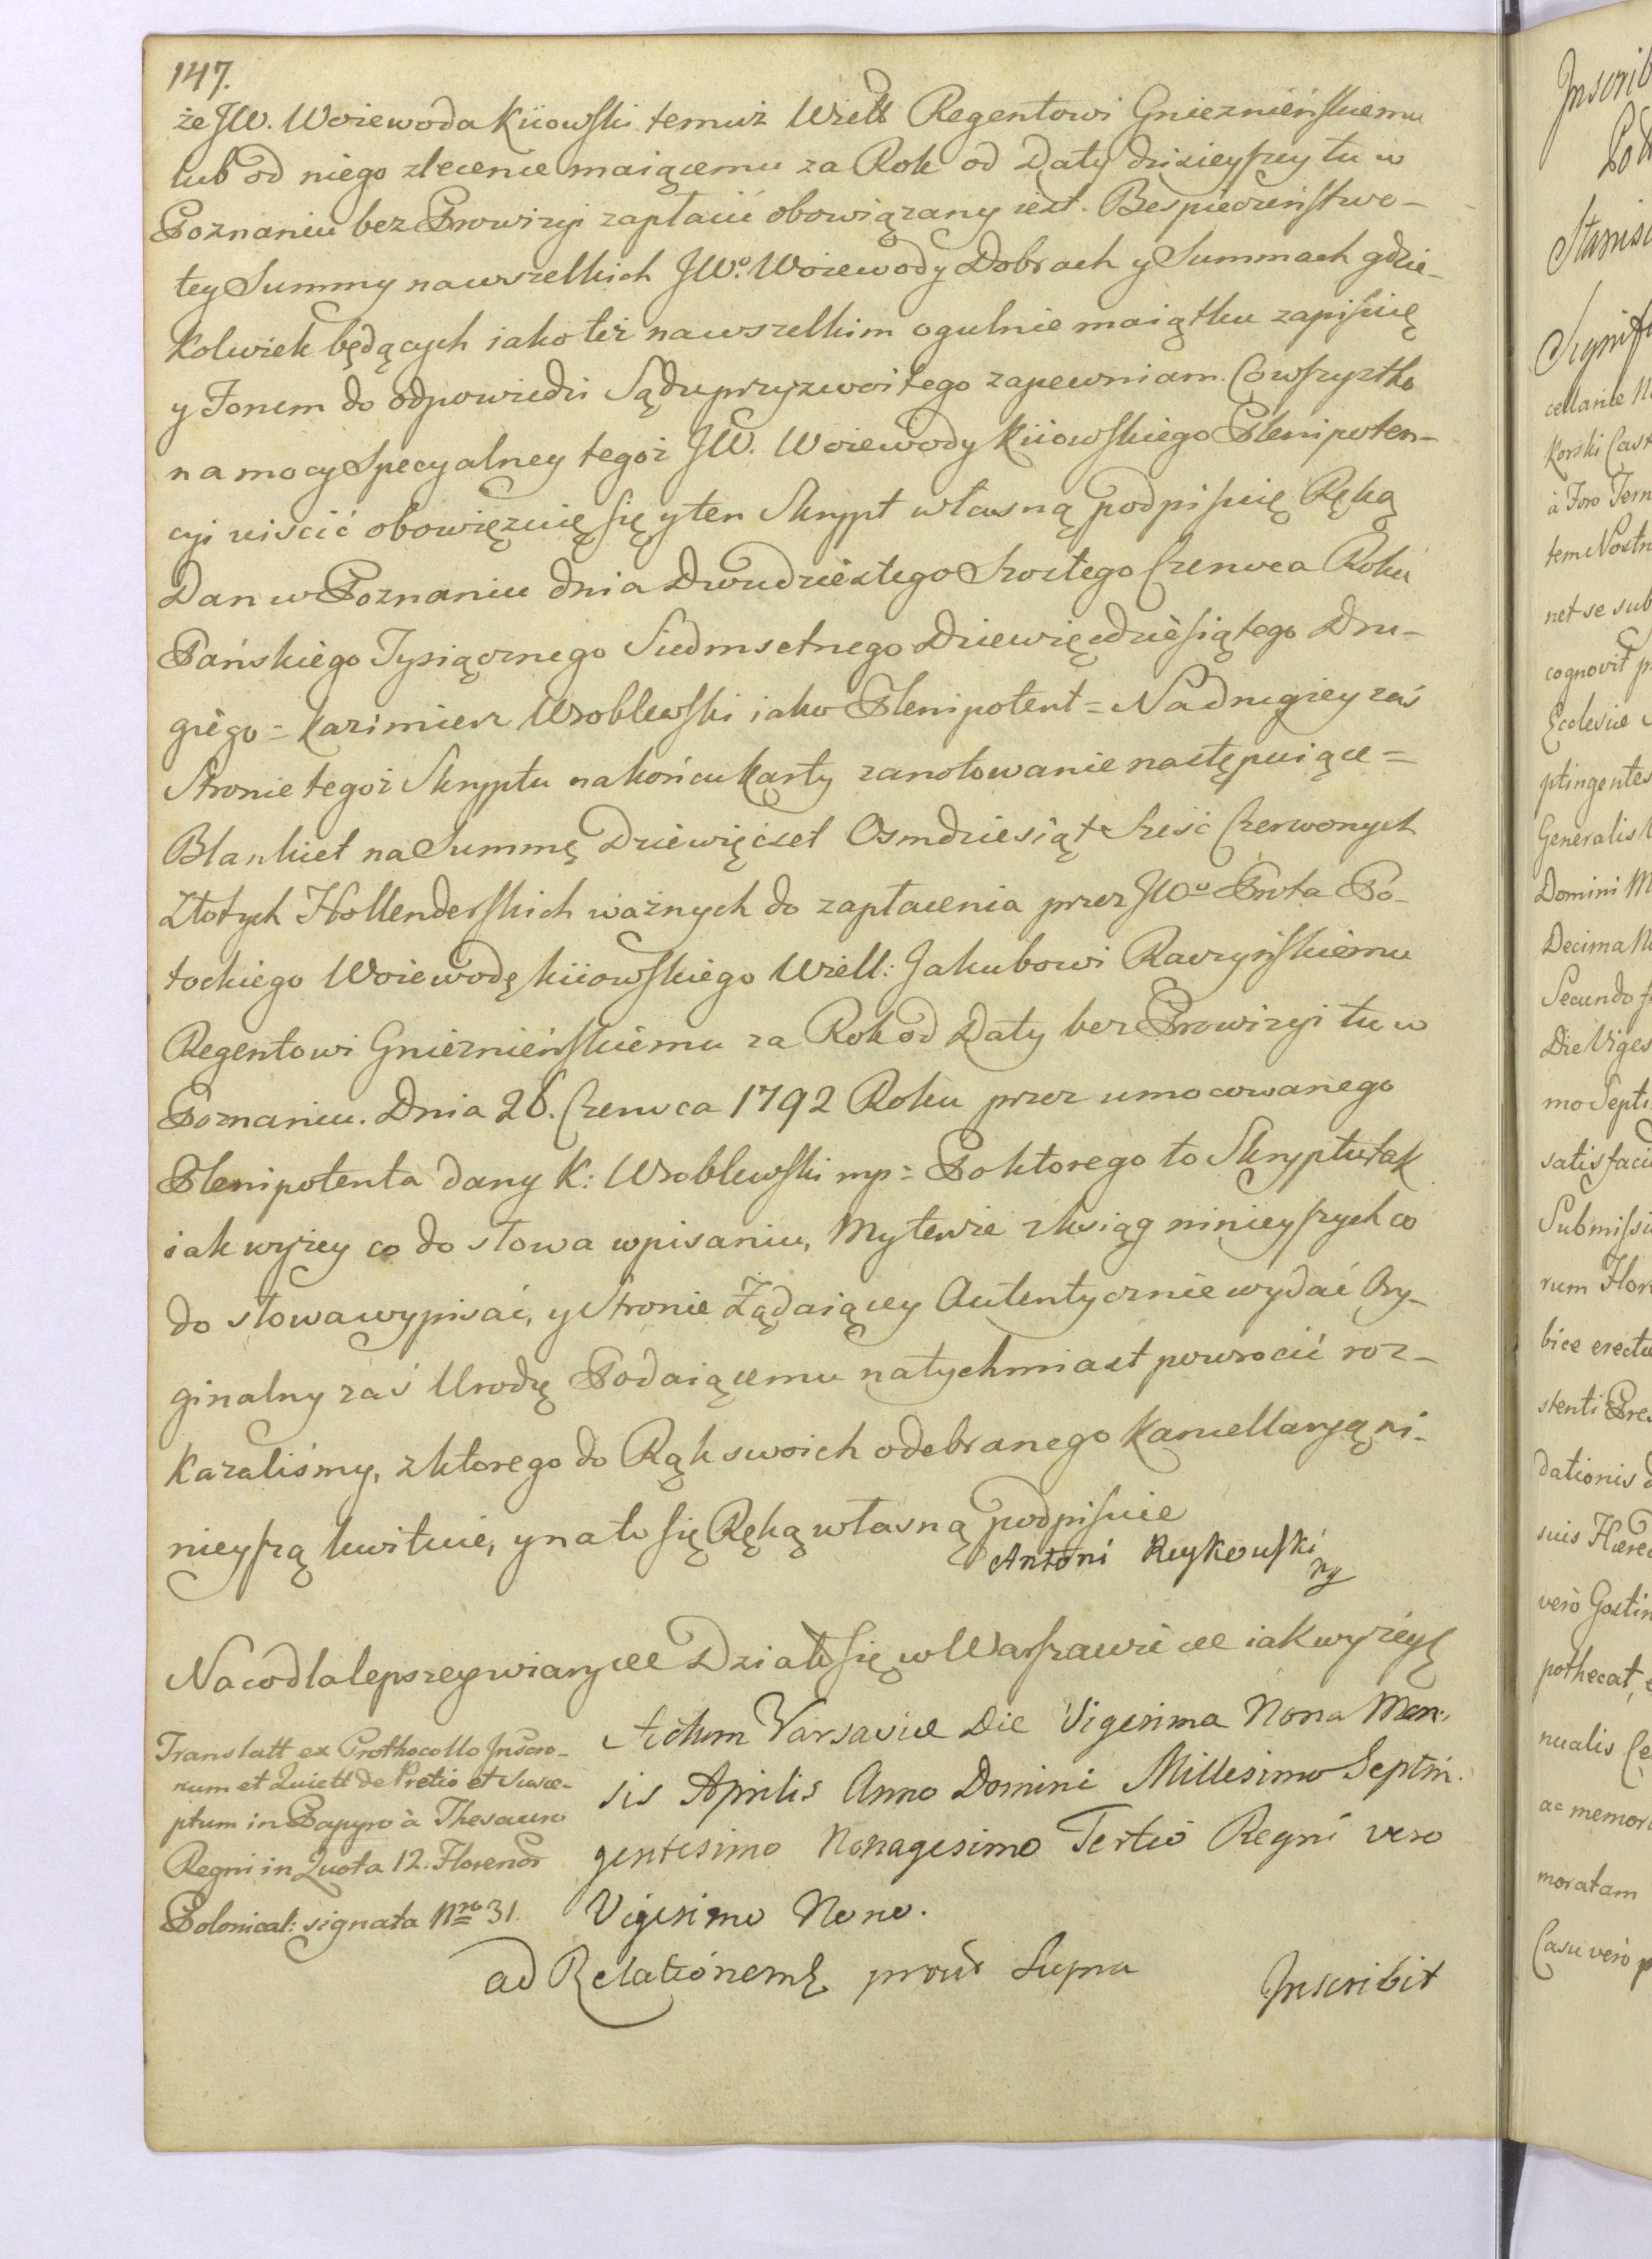 147.
że JW. Woiewoda Kiiowski temuż Wiell Regentowi Gnieznieńskiemu
lub od niego zlecenie maiącemu za Rok od Daty dzisieyszey tu w
Poznaniu bez Prowizyi zapłacić obowiązany iest. Bespieczeństwo-
tey Summy na wszelkich JWo. Woiewody Dobrach y Summach gdzie-
kolwiek będących iako też na wszelkim ogulnie maiątku zapisuię
y Forum do odpowiedzi Sądu przyzwoitego zapewniam. Co wszystko
na mocy Specyalney tegoż JW. Woiewody Kiiowskiego Plenipoten-
cyi uiścić obowięzuię się y ten Skrypt własną podpisuię Ręką
Dan w Poznaniu dnia Dwudziestego Szostego Czerwca Roku
Pańskiego Tysiącznego Siedmsetnego Dziewięćdziesiątego Dru-
giego = Kazimierz Wroblewski iako Plenipotent = Na drugiey zaś
Stronie tegoż Skryptu na końcu karty zanotowanie następuiące =
Blankiet na Summę Dziewięćset Osmdziesiąt Sześć Czerwonych
Złotych Hollenderskich ważnych do zapłacenia przez JWo Prota Po-
tockiego Woiewodę Kiiowskiego Wiell: Jakubowi Raczyńskiemu
Regentowi Gnieznieńskiemu za Rok od Daty bez Prowizyi tu w
Poznaniu. Dnia 26. Czerwca 1792 Roku przez umocowanego
Plenipotenta dany K: Wroblewski mp = Po ktorego to Skryptu tak
iak wyżey co do słowa wpisaniu, My tenże z ksiąg ninieyszych co
do słowa wypisać, y Stronie Żądaiącey Autentycznie wydać Ory-
ginalny zaś Urodz Podaiącemu natychmiast powrocić roz-
kazaliśmy, z ktorego do Rąk swoich odebranego Kancellaryą ni-
nieyszą kwituie, y na to się Ręką własną podpisuie
Antoni Rykowski
mp
Na co dla lepszey wiary etc Działo się w Warszawie etc iak wyżey
Translatt ex Prothocollo Inscro-
num et Quiett de Pretio et Susce-
ptum in Papyro à Thesauro
Regni in Quota 12. Florenos
Polonical: signata Nro 31.
Actum Varsaviæ Die Vigesima Nona Men-
sis Aprilis Anno Domini Millesimo Septin-
gentesimo Nonagesimo Tertio Regni vero
Vigesimo Nono.
ad Relationem prout Supra
Inscribit